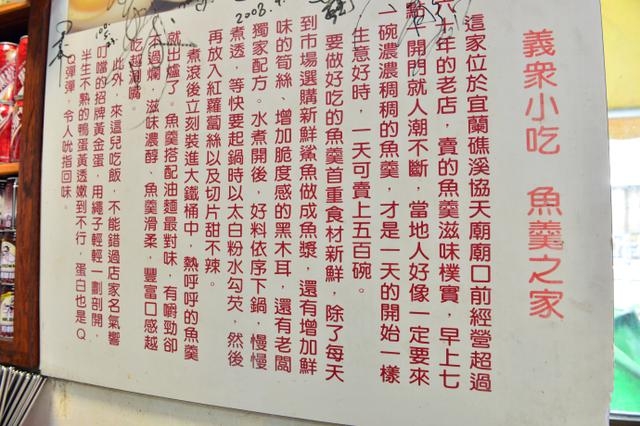 義衆小吃 魚羹之家
這家位於宜蘭礁溪協天廟廟口前經營超過
十年的老店，賣的魚羹滋味樸實，早上七
點，開門就人潮不斷，當地人好像一定要來
一碗濃濃稠稠的魚羹，才是一天的開始一樣
生意好時，一天可賣上五百碗。
要做好吃的魚羹首重食材新鮮，除了每天
到市場選購新鮮鯊魚做成魚漿，還有增加鮮
味的筍絲、增加脆度感的黑木耳，還有老闆
獨家配方。水煮開後，好料依序下鍋，慢慢
煮透，等快要起鍋時以太白粉水勾芡，然後
再放入紅蘿蔔絲以及切片甜不辣。
煮滾後立刻裝進大鐵桶中，熱呼呼的魚羹
就出爐了。魚羹搭配油麵最對味，有嚼勁卻
不過爛，滋味濃醇、魚羹滑柔，豐富口感越
吃越涮嘴。
此外，來這兒吃飯，不能錯過店家名氣響
叮噹的招牌黃金蛋，用繩子輕輕一劃剖開，
半生不熟的鴨蛋黃透嫩到不行，蛋白也是Q
Q彈彈，令人吮指回味。